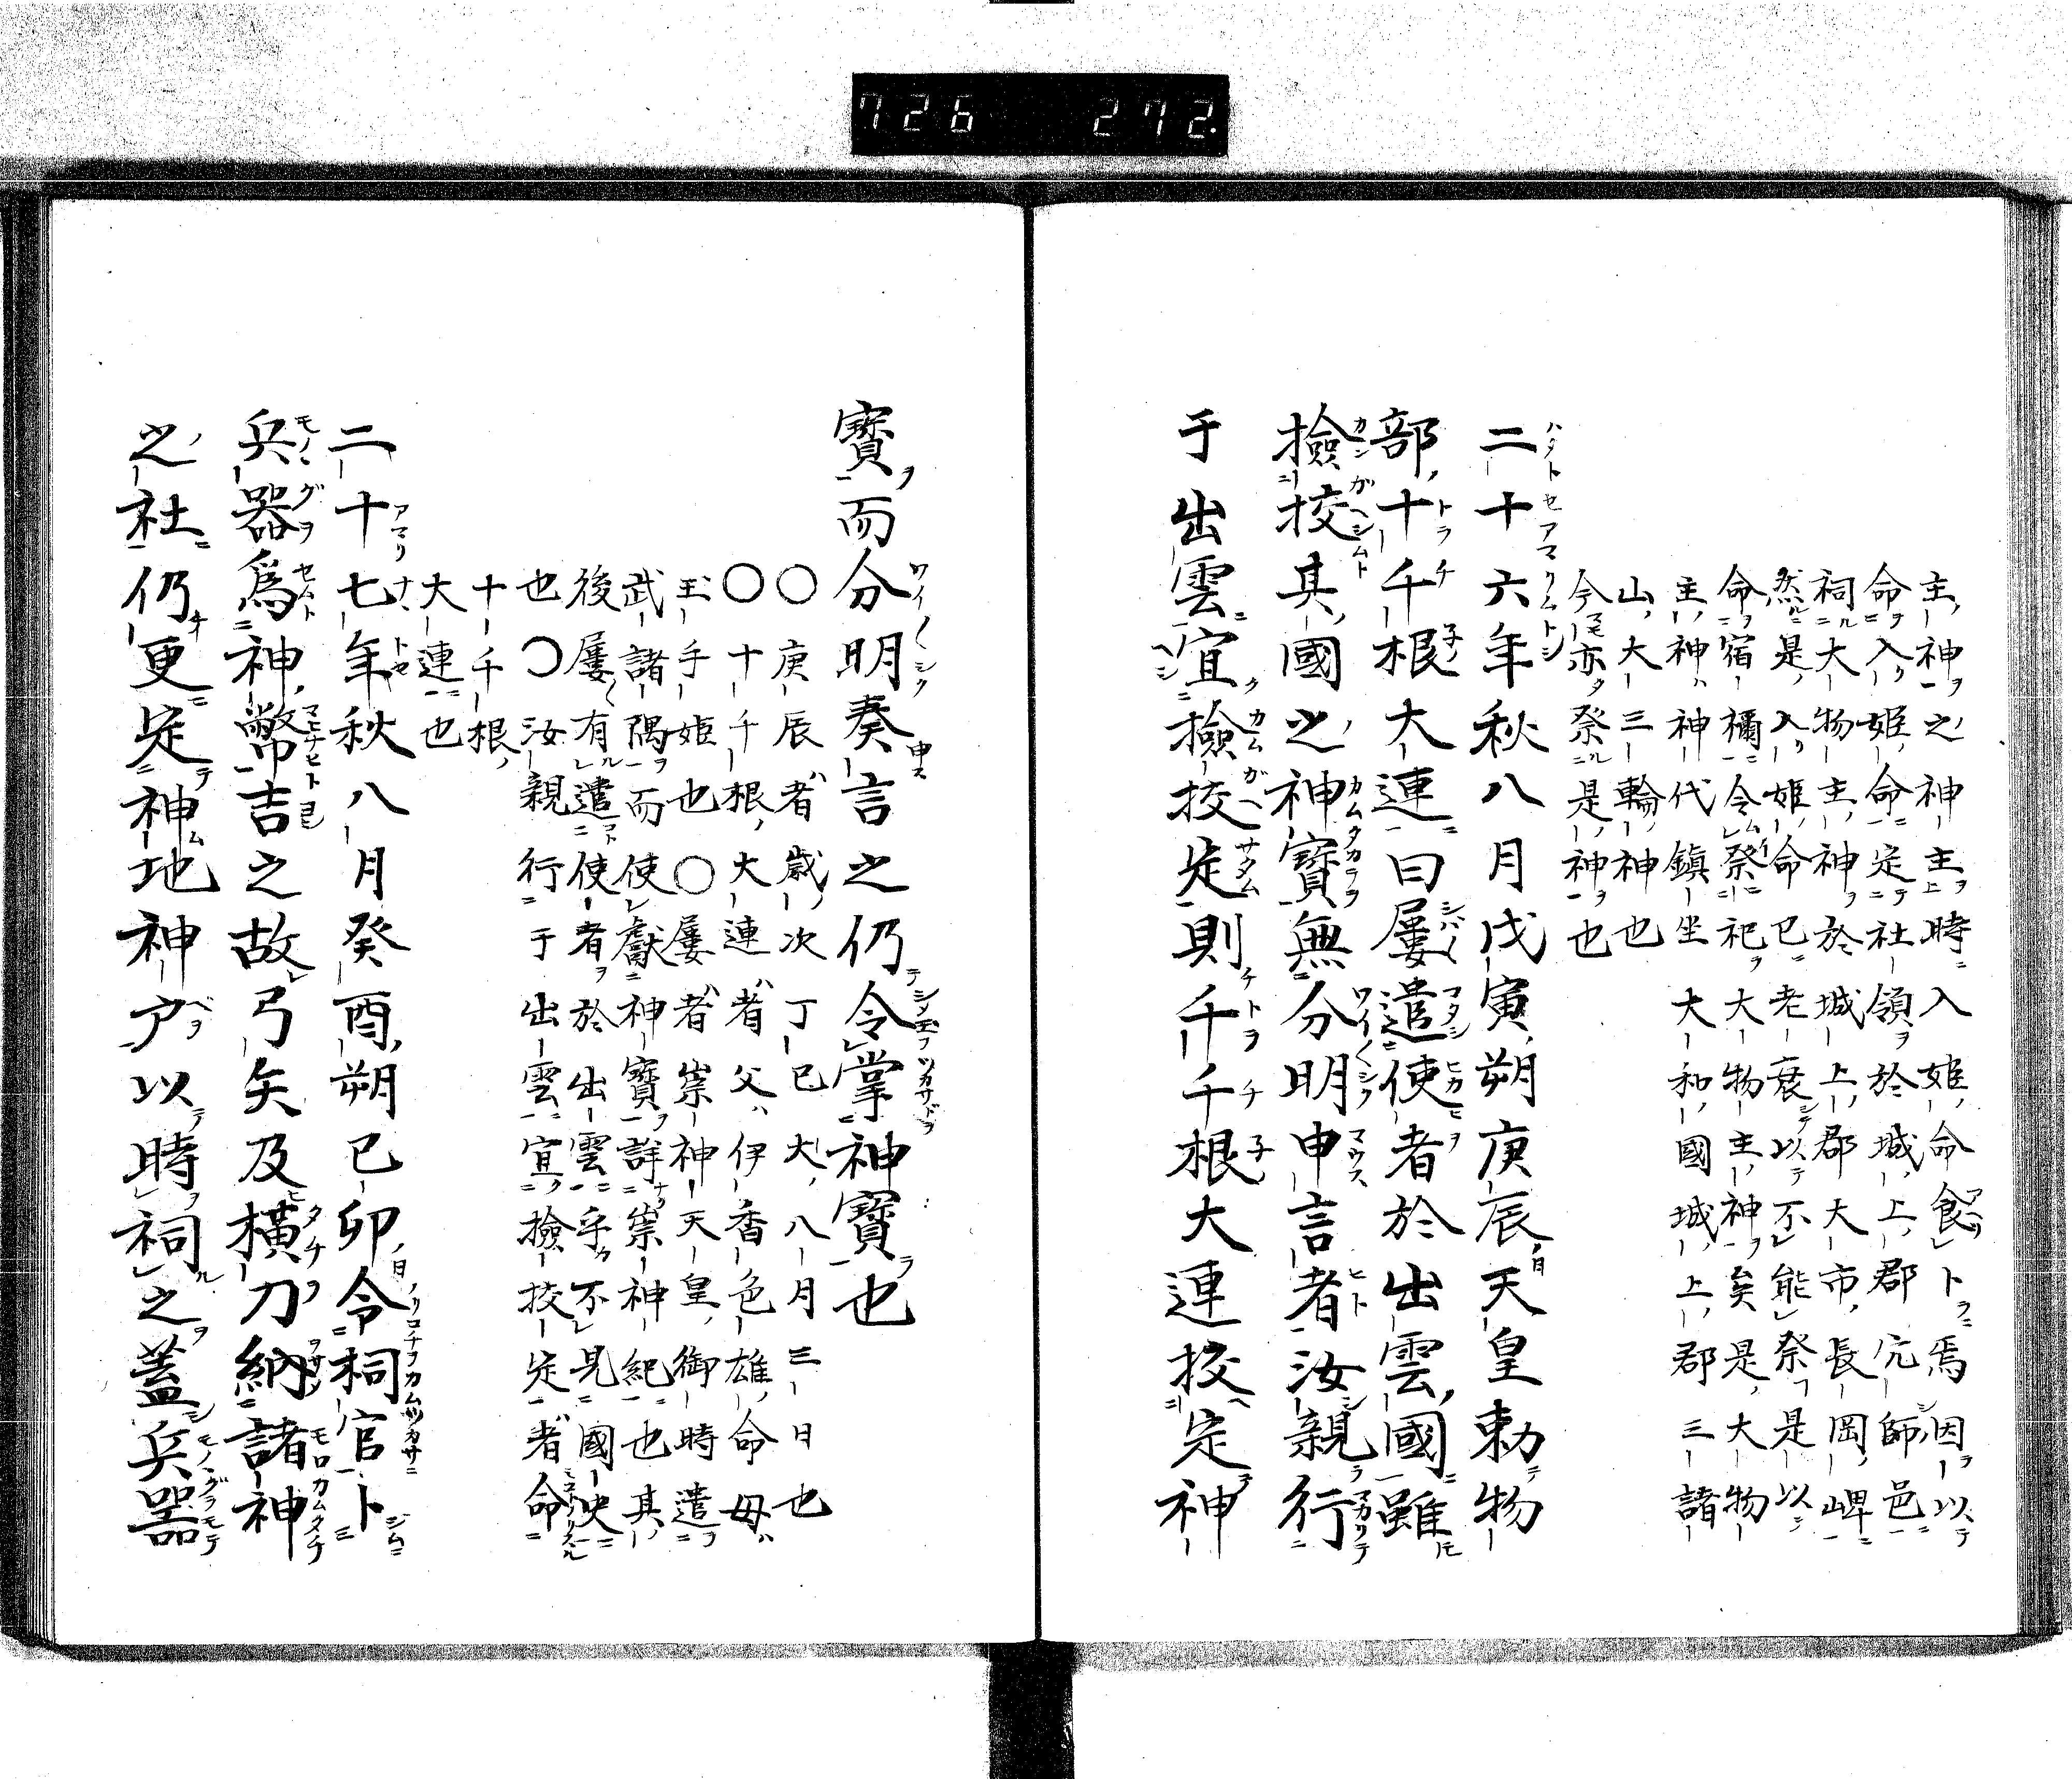 726 272
主神之神主時入姫命食卜焉因以
命入姫命定社領於城上郡宍師邑
祠大物主神於城上郡大市長岡岬
然是入姫命已老衰以不能祭是以
命宿禰令祭祀大物主神矣是大物
主神神代鎮坐大和國城上郡三諸
山大三輪神也
今亦祭是神也
二十六年秋八月戊寅朔庚辰天皇勅物
部十千根大連曰屢遣使者於出雲國雖
撿挍其國之神寶無分明申言者汝親行
于出雲宜撿挍定則千千根大連挍定神
寶而分明奏言之仍令掌神寶也
〇庚辰者歳次丁巳大八月三日也
〇十千根大連者父伊香色雄命母
玉手姫也〇屢者崇神天皇御時遣
武諸隅而使獻神寶詳崇神紀也其
後屢有遣使者於出雲乎不見國史
也〇汝親行于出雲宜撿挍定者命
十千根
大連也
二十七年秋八月癸酉朔已卯令祠官卜
兵器爲神幣吉之故弓矢及横刀納諸神
之社仍更定神地神戸以時祠之蓋兵器